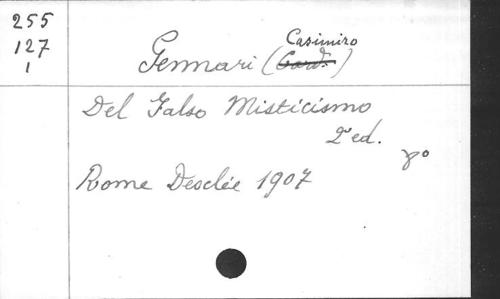 255
127
1
Casimiro
Gennari (Card.)
Del Falso Misticismo
2ª ed.
8°
Rome Desclée 1907